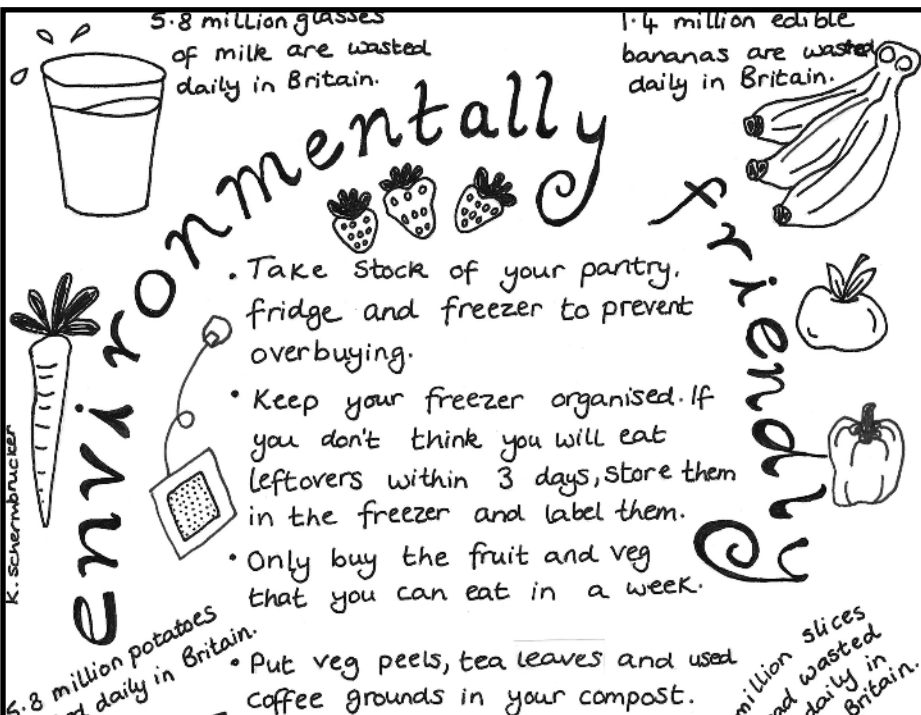 5.8 million glasses
of milk are wasted
daily in Britain.
1.4 million edible
bananas are wasted
daily in Britain.
environmentally
friendly
• Take stock of your pantry,
fridge and freezer to prevent
overbuying.
• Keep your freezer organised. If
you don't think you will eat
leftovers within 3 days, store them
in the freezer and label them.
• Only buy the fruit and veg
that you can eat in a week.
• Put veg peels, tea leaves and used
coffee grounds in your compost.
K. Schermbrucker
5.8 million potatoes
daily in Britain.
million slices
wasted
daily in
Britain.